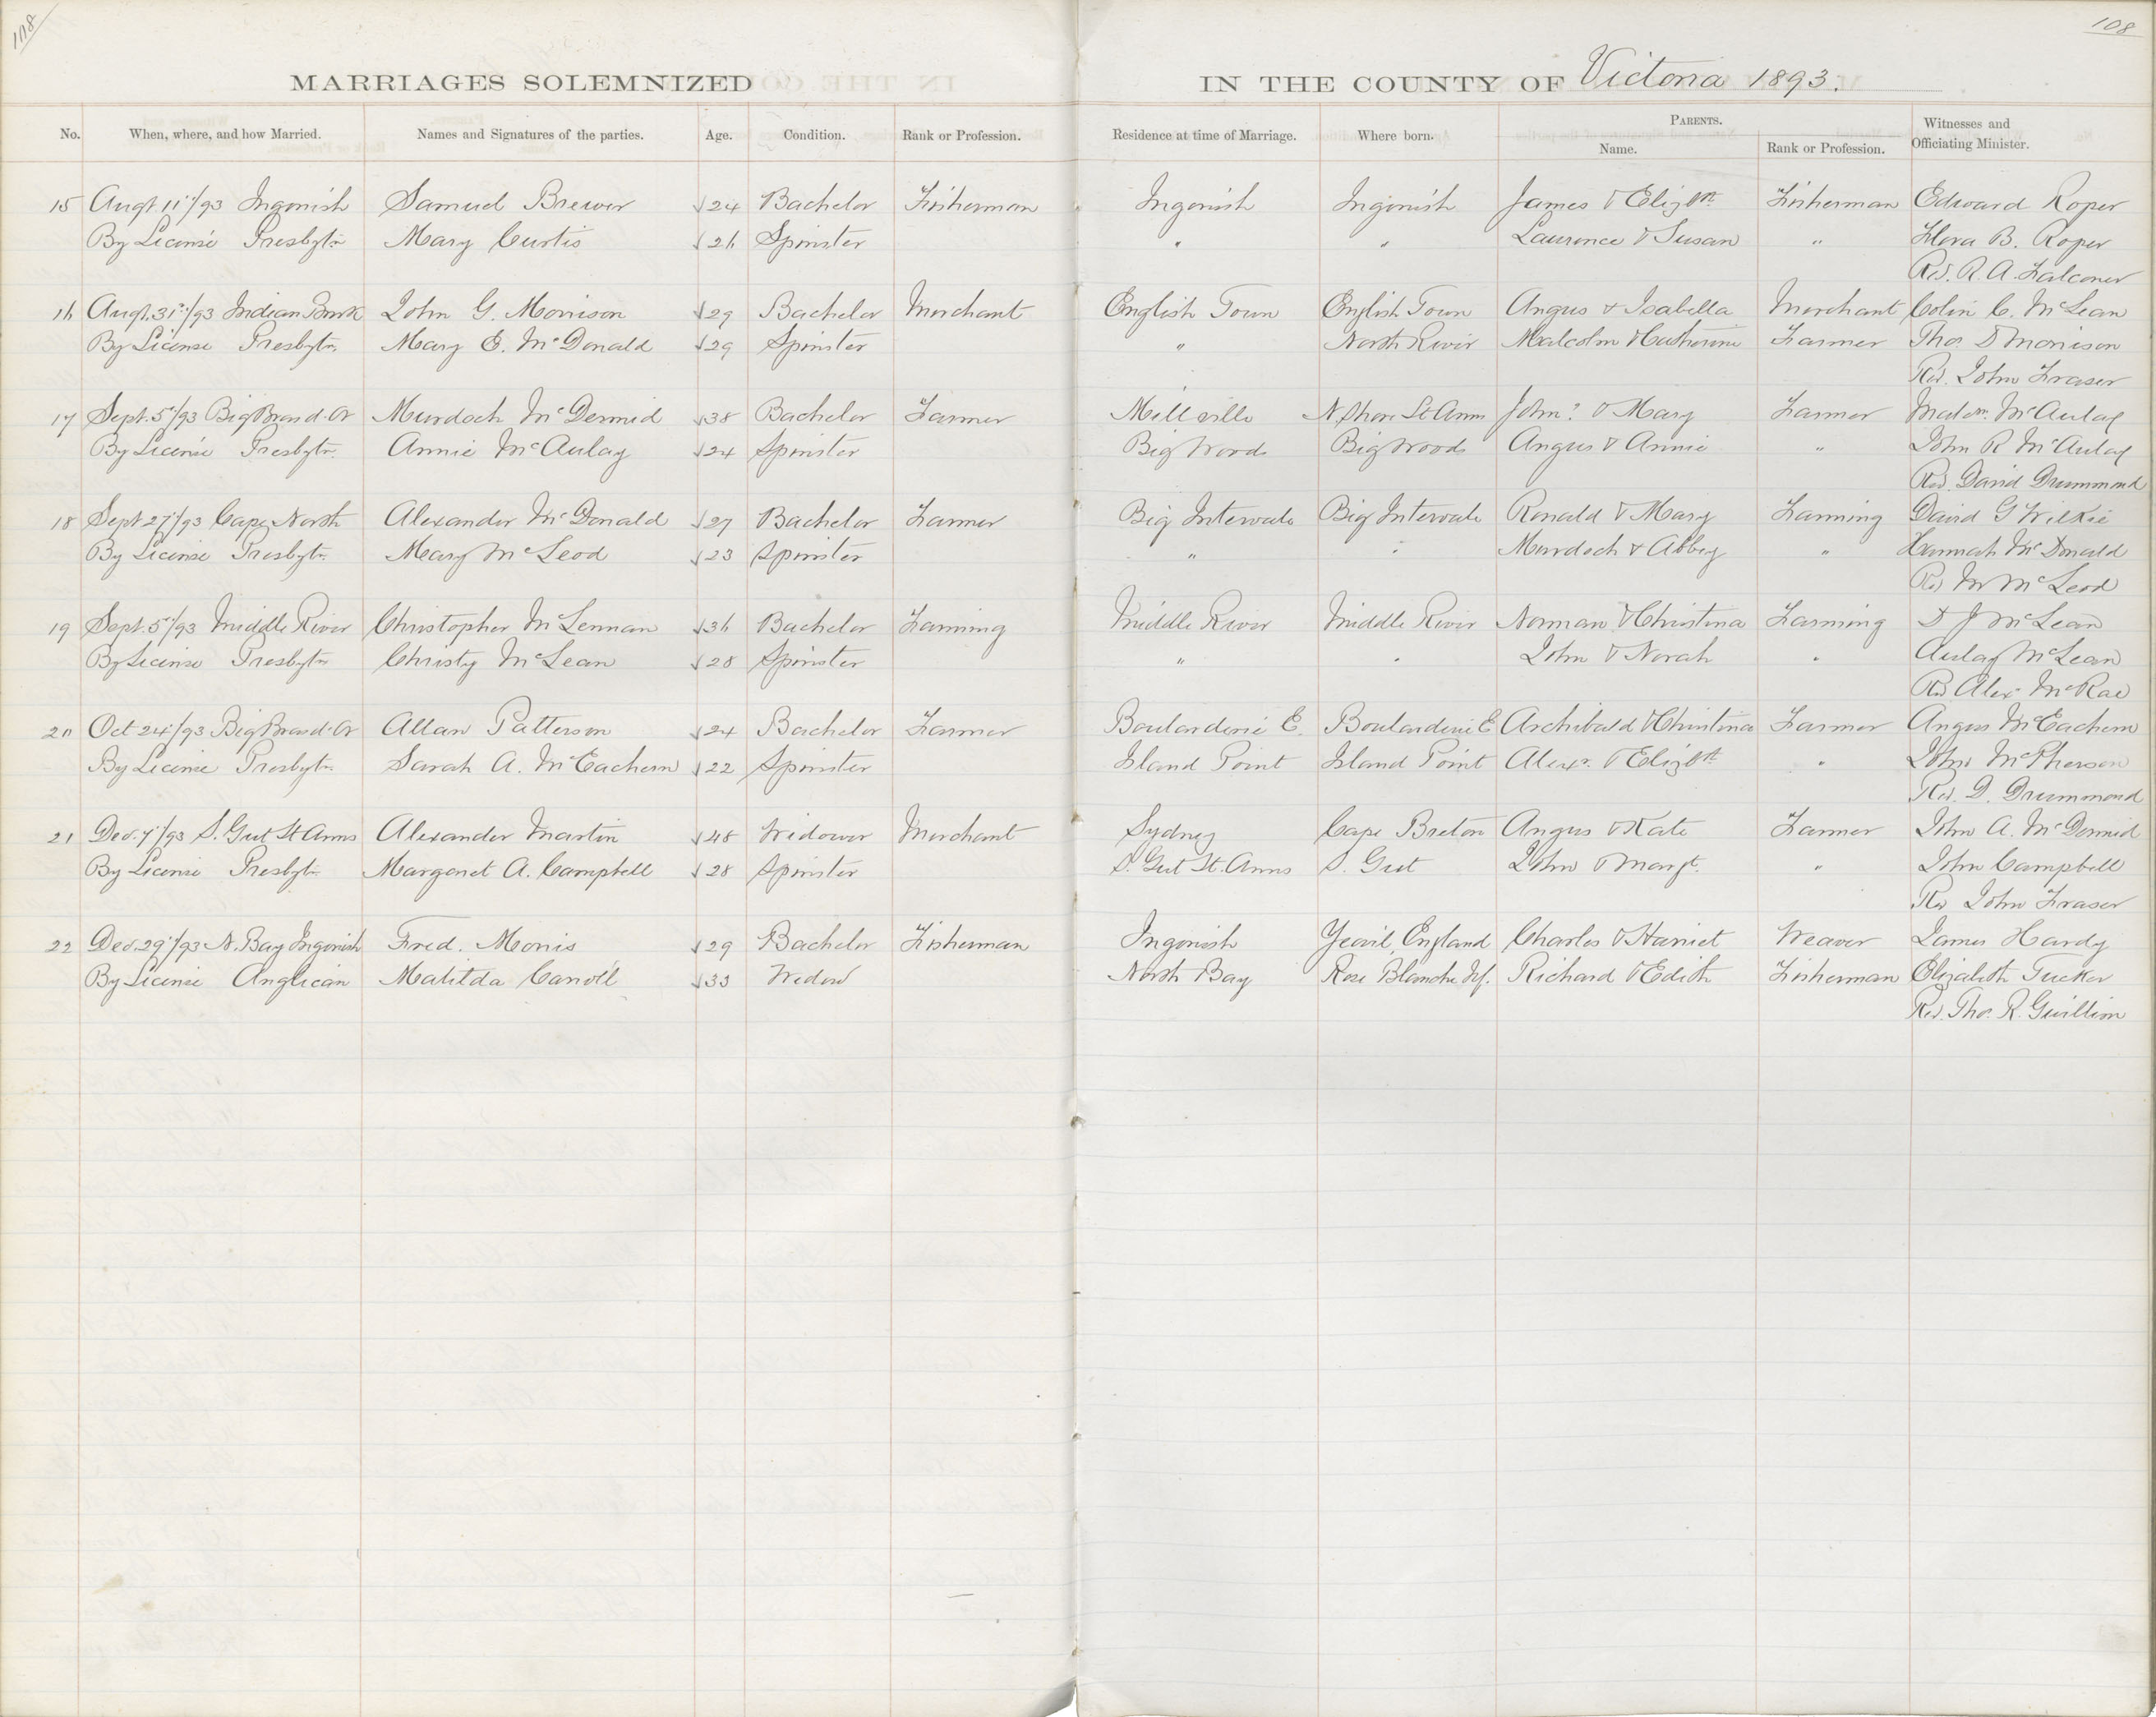 108
108
MARRIAGES SOLEMNIZED IN THE COUNTY OF Victoria 1893.
No. When, where, and how Married. Names and Signatures of the parties. Age. Condition. Rank or Profession. Residence at time of Marriage. Where born. PARENTS. Name. Rank or Profession. Witnesses and Officiating Minister.
15 Augt 11"/93 Ingonish Samuel Brewer 24 Bachelor Fisherman Ingonish Ingonish James & Elizbth Fisherman Edward Roper
By License Presbytn Mary Curtis 26 Spinster " " Laurence & Susan " Flora B. Roper
Rev. R. A. Falconer
16 Augt. 31st/93 Indian Brook John G. Morrison 29 Bachelor Merchant English Town English Town Angus & Isabella Merchant Colin C. McLean
By License Presbytn Mary E. McDonald 29 Spinster " North River Malcolm & Catherine Farmer Thos D Morrison
Rev. John Fraser
17 Sept. 5"/93 Big Brasd-Or Murdoch McDermid 38 Bachelor Farmer Mill ville N. Shore St Anns John & Mary Farmer McAulay
By License Presbytn. Annie McAulay 24 Spinster Big Woods Big Woods Angus & Annie " John R McAulay
Rev. David Drummond
18 Sept. 27"/93 Cape North Alexander McDonald 27 Bachelor Farmer Big Intervale Big Intervale Ronald & Mary Farming David G Wilkie
By License Presbytn. Mary McLeod 23 Spinster " " Murdoch & Abbey " Hannah McDonald
Rev M McLeod
19 Sept. 5"/93 Middle River Christopher McLennan 36 Bachelor Farming Middle River Middle River Norman & Christina Farming D J McLean
By License Presbytn Christy McLean 28 Spinster " " John & Norah " Aulay McLean
Rev Alex. McRae
20 Oct 24"/93 Big Brasd-Or Allan Patterson 24 Bachelor Farmer Boulardérie E. Boulardérie E Archibald & Christina Farmer Angus McEachern
By License Presbytn. Sarah A. McEachern 22 Spinster Island Point Island Point Alexr. & Elizbth " John McPherson
Rev. D. Drummond
21 Dec. 7"/93 S. Gut St Anns Alexander Martin 48 Widower Merchant Sydney Cape Breton Angus & Kate Farmer John A. McDermid
By License Presbytn Margaret A. Campbell 28 Spinster S. Gut St. Anns S. Gut John & Margt. " John Campbell
Rev John Fraser
22 Dec. 29"/93 N. Bay Ingonish Fred. Morris 29 Bachelor Fisherman Ingonish Yeovil, England Charles & Harriet Weaver James Hardy
By License Anglican Matilda Carroll 33 Widow North Bay Rose Blanche Nf. Richard & Edith Fisherman Elizabeth Tucker
Rev. Thos. R. Gwillim